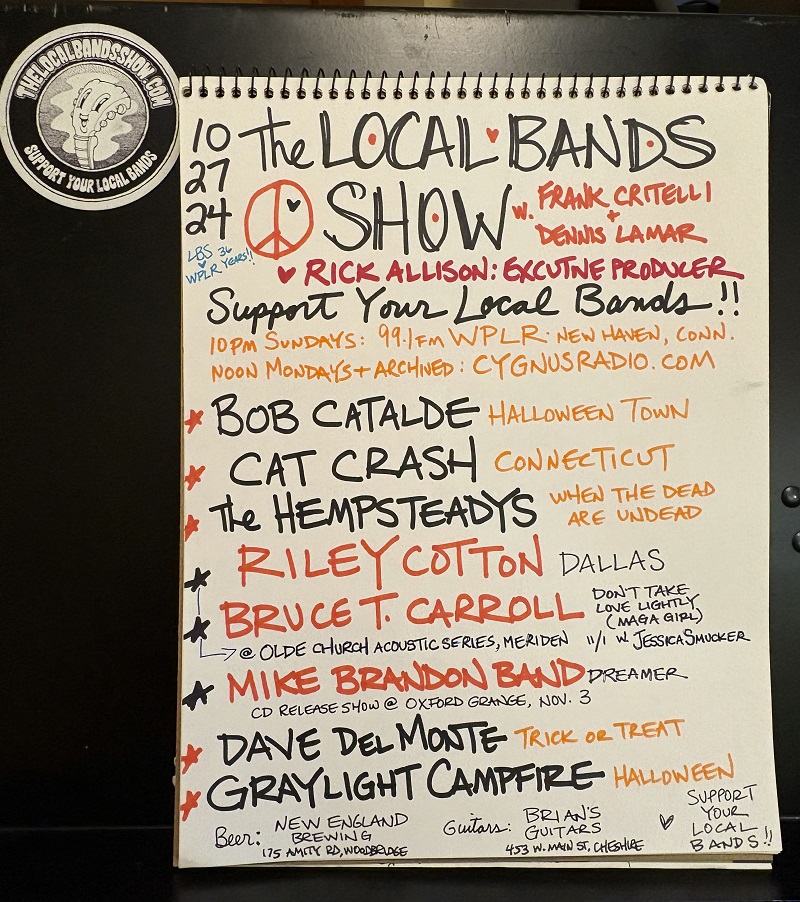 THELOCALBANDSSHOW.COM
SUPPORT YOUR LOCAL BANDS
10
27
24
The LOCAL BANDS
SHOW w. FRANK CRITELLI
+
DENNIS LAMAR
LBS 36
WPLR YEARS!!
RICK ALLISON: EXCUTIVE PRODUCER
Support Your Local Bands!!
10PM SUNDAYS: 99.1FM WPLR· NEW HAVEN, CONN.
NOON MONDAYS + ARCHIVED: CYGNUSRADIO.COM
BOB CATALDE HALLOWEEN TOWN
CAT CRASH CONNECTICUT
The HEMPSTEADYS WHEN THE DEAD
ARE UNDEAD
RILEY COTTON DALLAS
BRUCE T. CARROLL DON'T TAKE
LOVE LIGHTLY
(MAGA GIRL)
@ OLDE CHURCH ACOUSTIC SERIES, MERIDEN 11/1 W. JESSICA SMUCKER
MIKE BRANDON BAND DREAMER
CD RELEASE SHOW @ OXFORD GRANGE, NOV. 3
DAVE DEL MONTE TRICK OR TREAT
GRAYLIGHT CAMPFIRE HALLOWEEN
Beer: NEW ENGLAND
BREWING
175 AMITY RD, WOODBRIDGE
Guitars: BRIAN'S
GUITARS
453 W. MAIN ST, CHESHIRE
SUPPORT
YOUR
LOCAL
BANDS!!